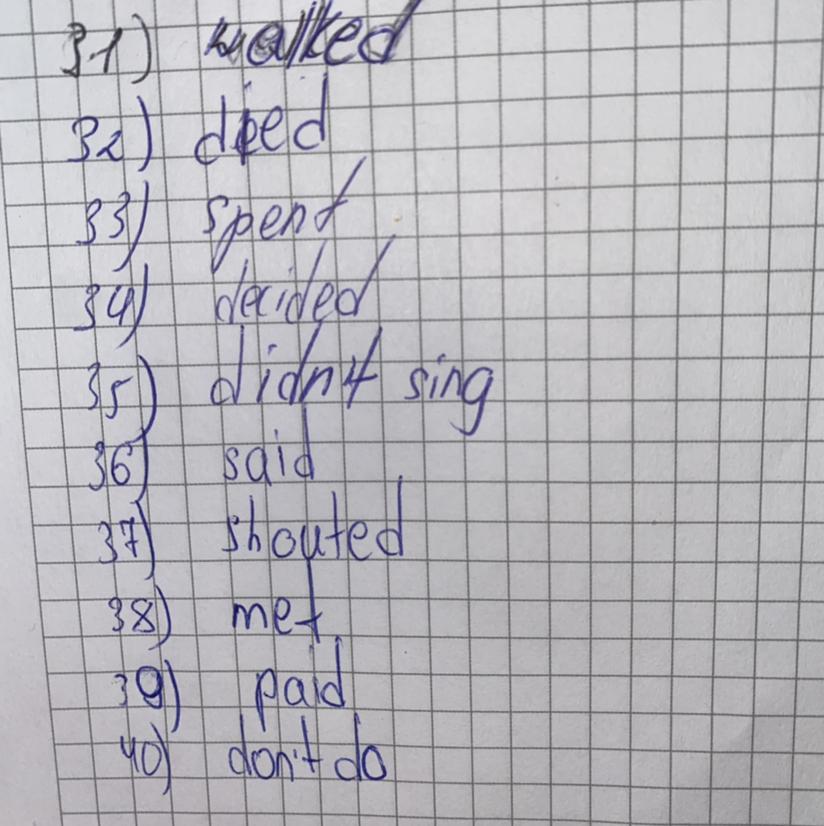 31) walked
32) died
33) spent
34) decided
35) didn't sing
36) said
37) shouted
38) met
39) paid
40) don't do